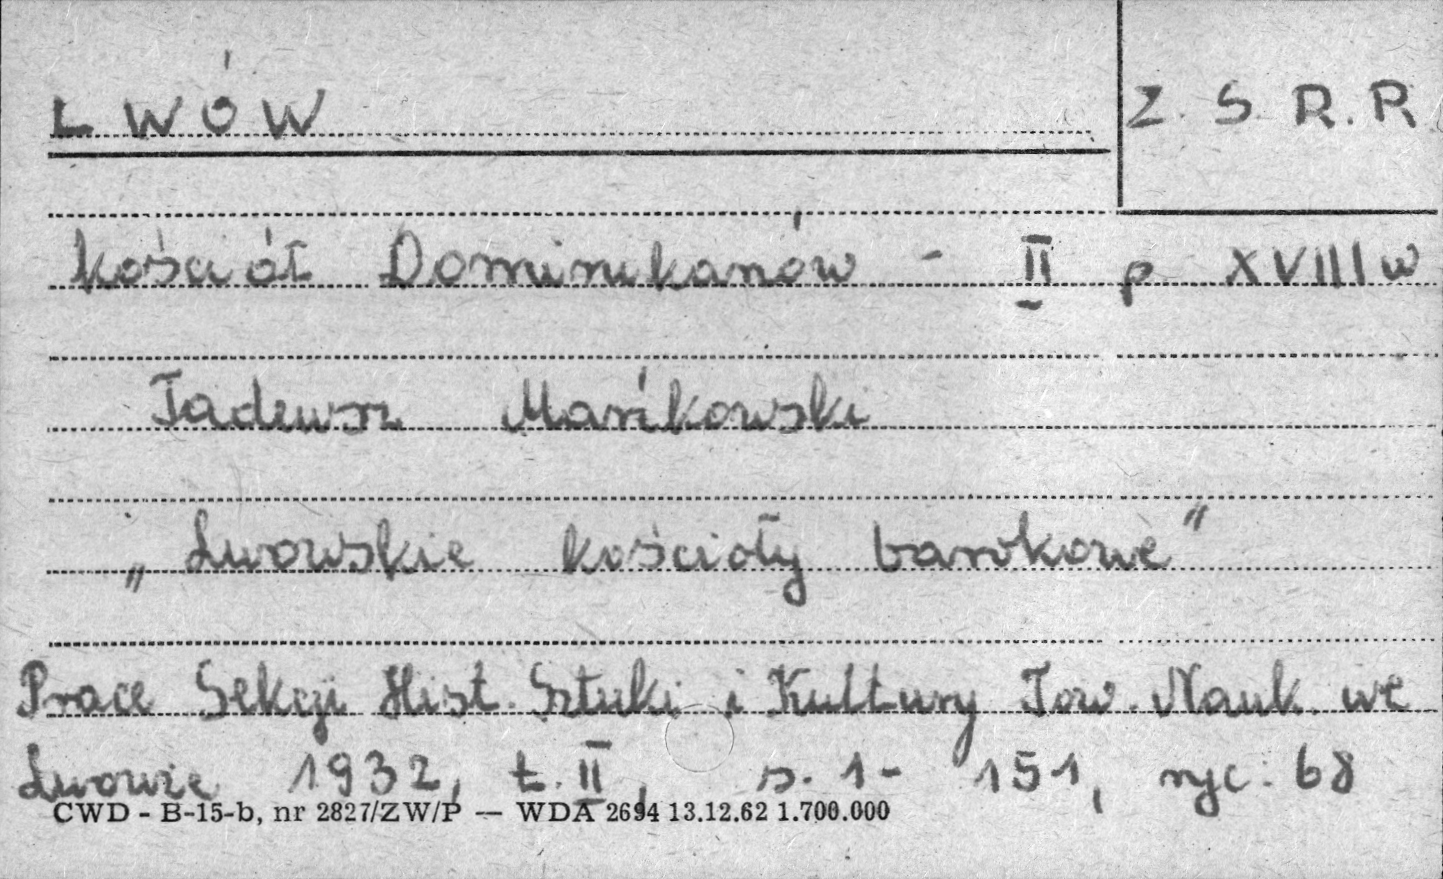 LWÓW
Z.S.R.R.
kościół Dominikanów - II p XVIII w
Tadeusz Mańkowski
„Lwowskie kościoły barokowe"
Prace Sekcji Hist. Sztuki i Kultury Tow. Nauk. we
Lwowie 1932, t. II, s. 1-151, ryc. 68
CWD - B-15-b, nr 2827/ZW/P — WDA 2694 13.12.62 1.700.000